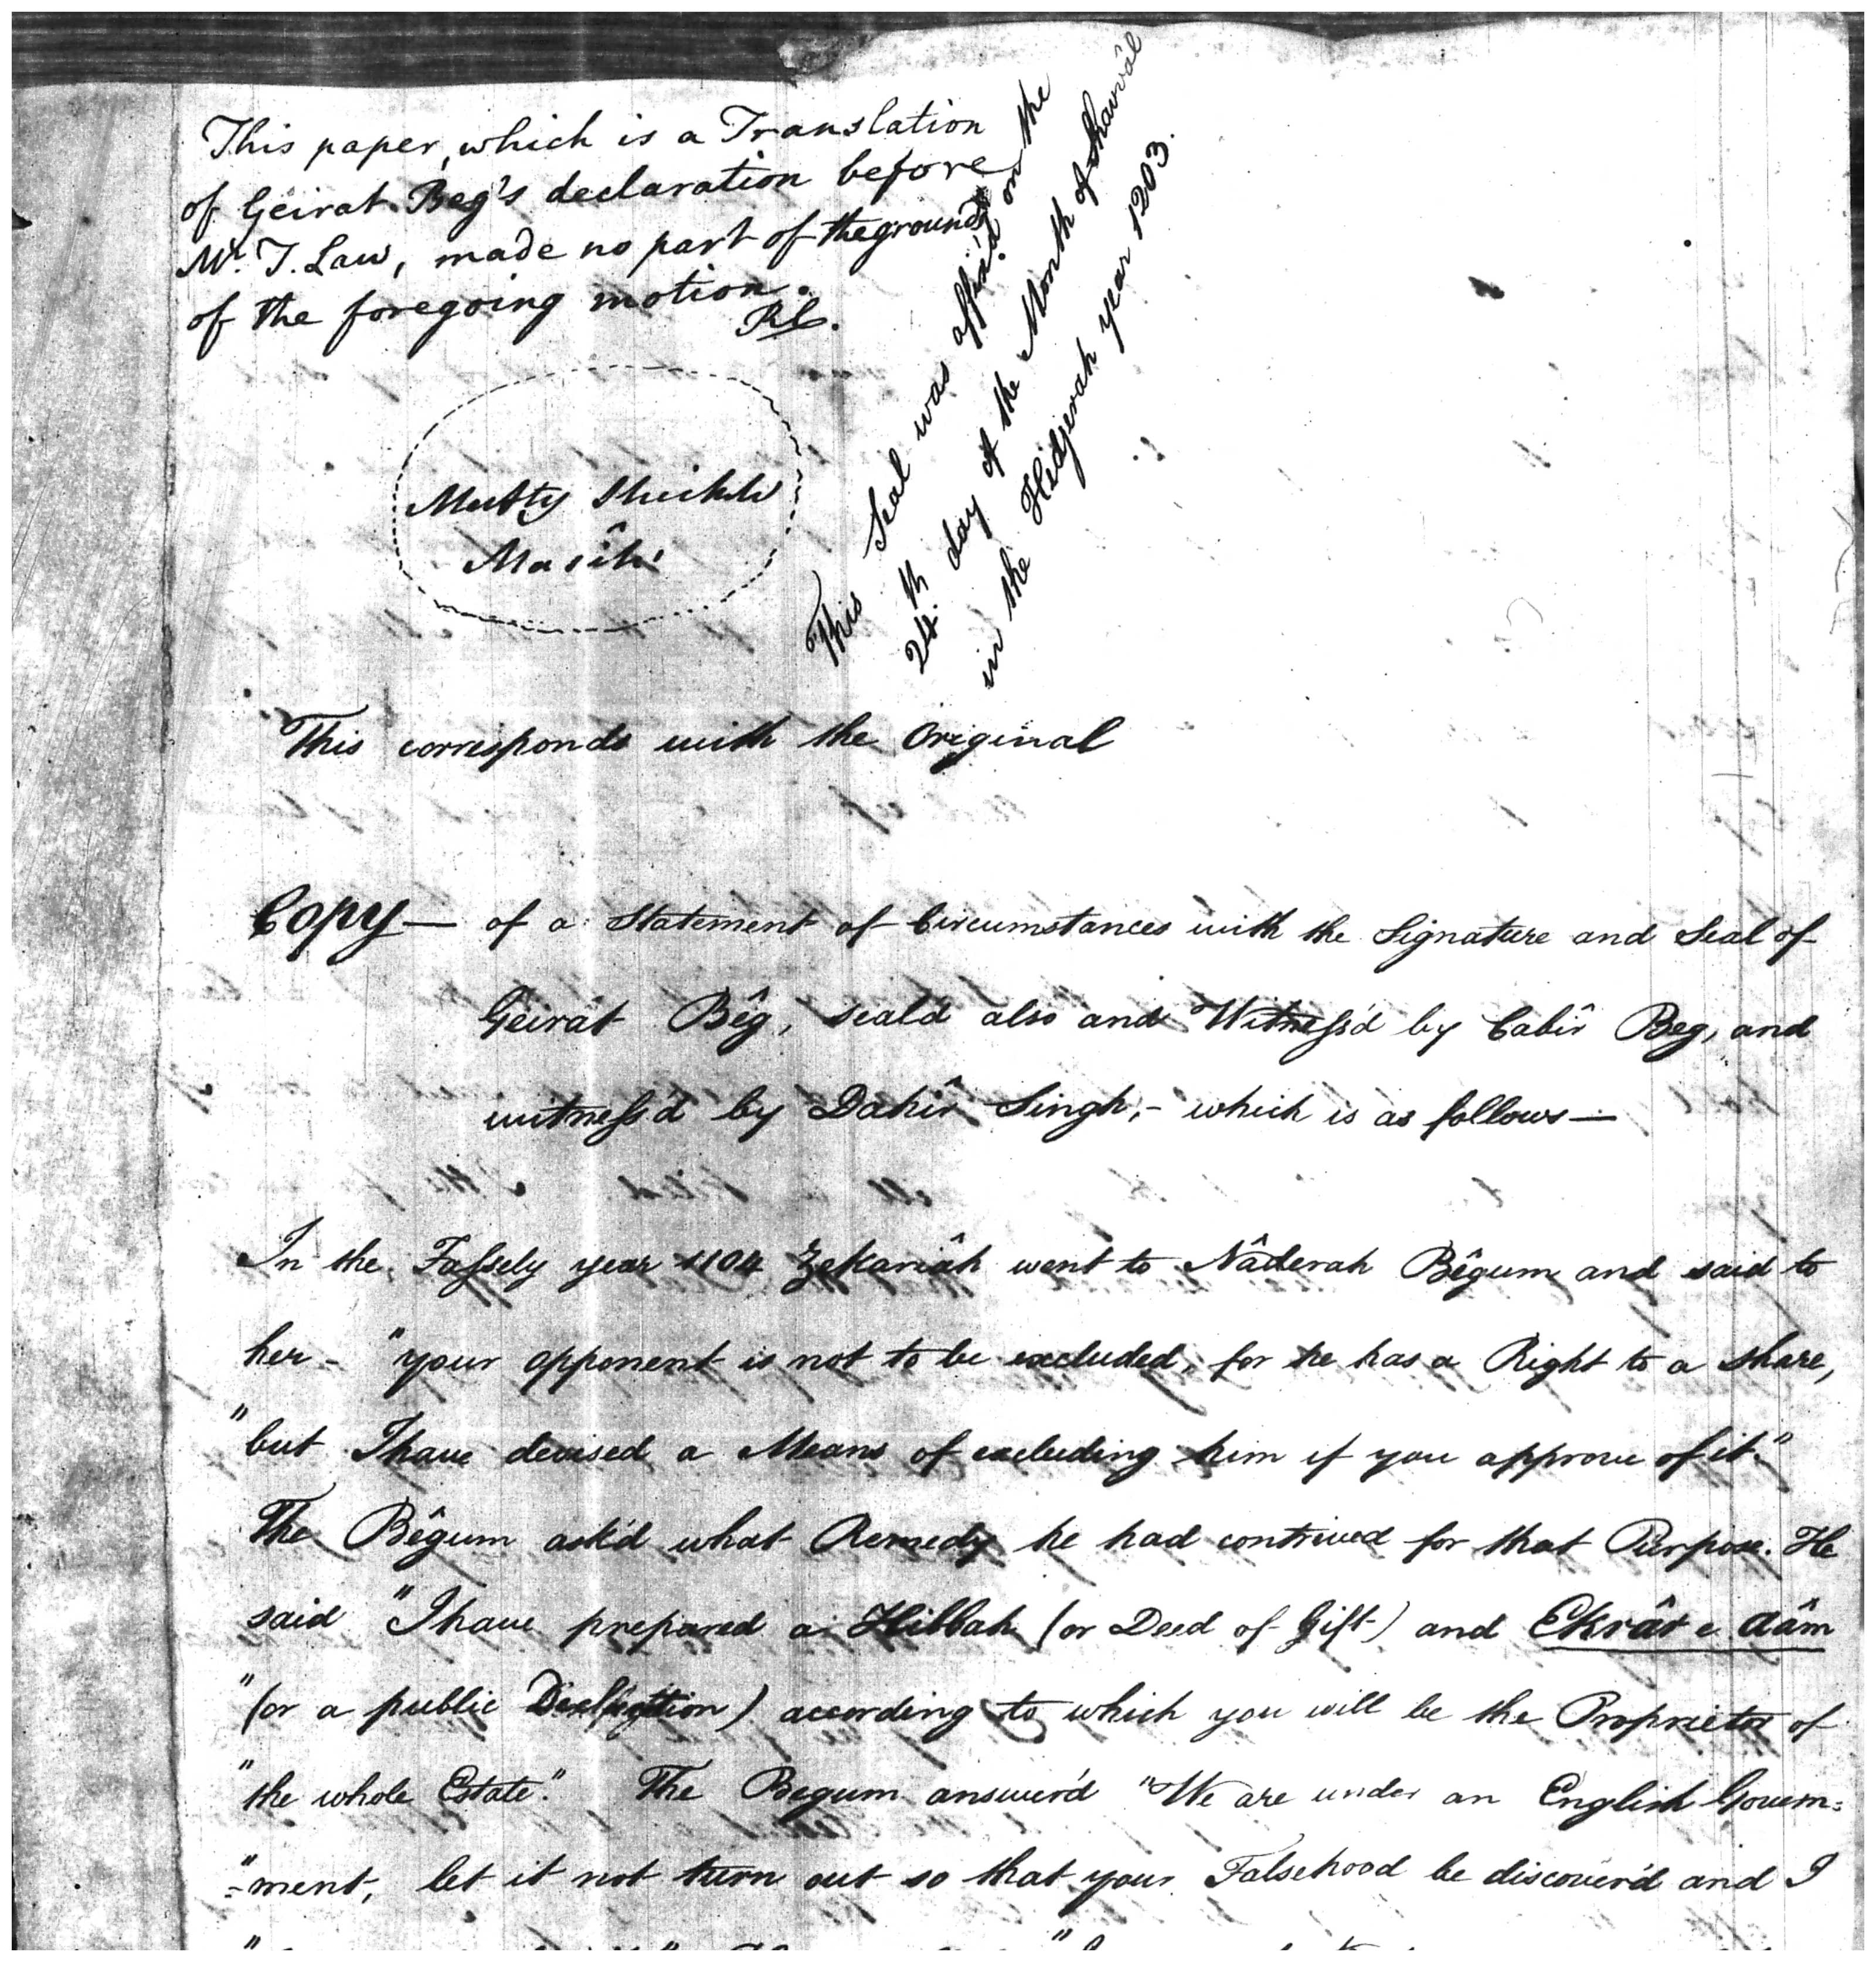 This paper, which is a Translation
of Geirat Beg's declaration before
Mr. T. Law, made no part of the grounds
of the foregoing motion.
Mufty Sheikh
Masîh
This Seal was affix'd on the
24th day of the Month of Shawâl
in the Hidgerah year 1203.
This corresponds with the Original
Copy— of a Statement of Circumstances with the Signature and Seal of
Geirât Bêg, seal'd also and Witness'd by Cabîr Beg, and
witness'd by Dahîr Singh,- which is as follows—
In the Fassely year 1104 Zekariâh went to Nâderah Bêgum and said to
her - "your opponent is not to be excluded, for he has a Right to a share,
"but I have devised a Means of excluding him if you approve of it."
The Bêgum ask'd what Remedy he had contrived for that Purpose. He
said "I have prepared a Hibbah (or Deed of Gift) and Ekrâr e aâm
"(or a public) according to which you will be the Proprietor of
"the whole Estate." The Begum answer'd "We are under an English Govern=
"=ment, let it not turn out so that your Falsehood be discover'd and I